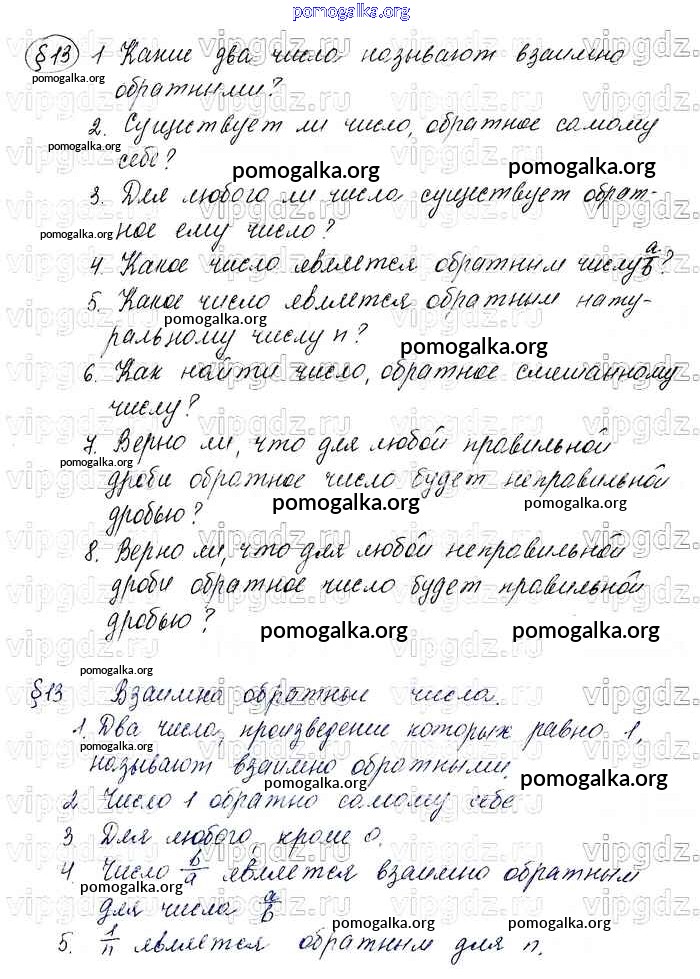 pomogalka.org
§13 1 Какие два числа называют взаимно
pomogalka.org
обратными?
2. Существует ли число, обратное самому
pomogalka.org
себе?
pomogalka.org
pomogalka.org
3. Для любого ли числа существует обрат-
pomogalka.org
ное ему число?
pomogalka.org
4. Какое число является обратным числу a/b?
5. Какое число является обратным нату-
pomogalka.org
ральному числу n?
pomogalka.org
6. Как найти число, обратное смешанному
числу?
7. Верно ли, что для любой правильной
pomogalka.org
дроби обратное число будет неправильной
pomogalka.org
pomogalka.org
дробью?
8. Верно ли, что для любой неправильной
дроби обратное число будет правильной
дробью?
pomogalka.org
pomogalka.org
pomogalka.org
§13 Взаимно обратные числа.
1. Два числа, произведение которых равно 1,
pomogalka.org
называют взаимно обратными.
pomogalka.org
2. Число 1 обратно самому себе
pomogalka.org
3 Для любого, кроме 0.
4 Число b/a является взаимно обратным
pomogalka.org
для числа a/b
pomogalka.org
pomogalka.org
5. 1/n является обратным для n.